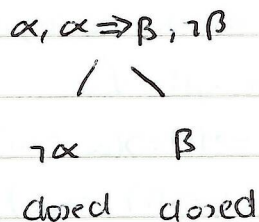 α, α ⇒ β, ¬β
¬α β
closed closed